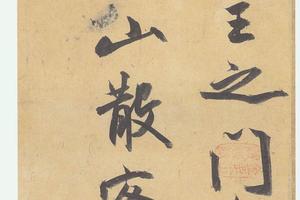 王之门
山散客